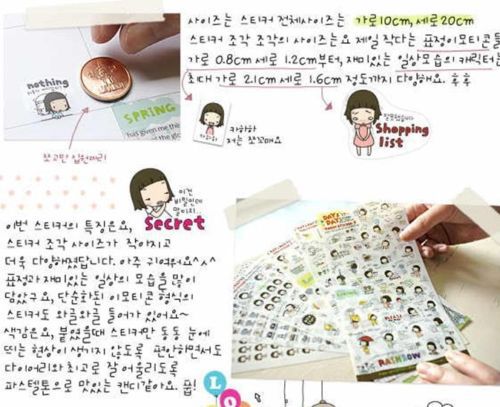 사이즈는 스티커 전체사이즈는 가로10cm, 세로20cm
스티커 조각 조각의 사이즈는요 제일 작다는 표정이모티콘들
가로 0.8cm 세로 1.2cm부터, 재미있는 일상모습의 캐릭터는
최대 가로 2.1cm 세로 1.6cm 정도까지 다양해요. 후후
nothing
SPRING
has given me the
쪼고만 십원짜리
카하하
저는 쪼꼬매요
Shopping
list
이건
비밀인데
말이지..
Secret
이번 스티커의 특징은요,
스티커 조각 사이즈가 작아지고
더욱 다양해졌답니다. 아주 귀여워요^^
표정과 재미있는 일상의 모습을 많이
담았구요, 단순화된 이모티콘 형식의
스티커도 와글와글 들어가 있어요~
생각은요, 붙였을때 스티커만 동동 눈에
띄는 현상이 생기지 않도록 편안하면서도
다이어리와 최고로 잘 어울리도록
파스텔톤으로 맛있는 캔디같아요. 풉!
DAY &
DAY
RAINBOW
LO